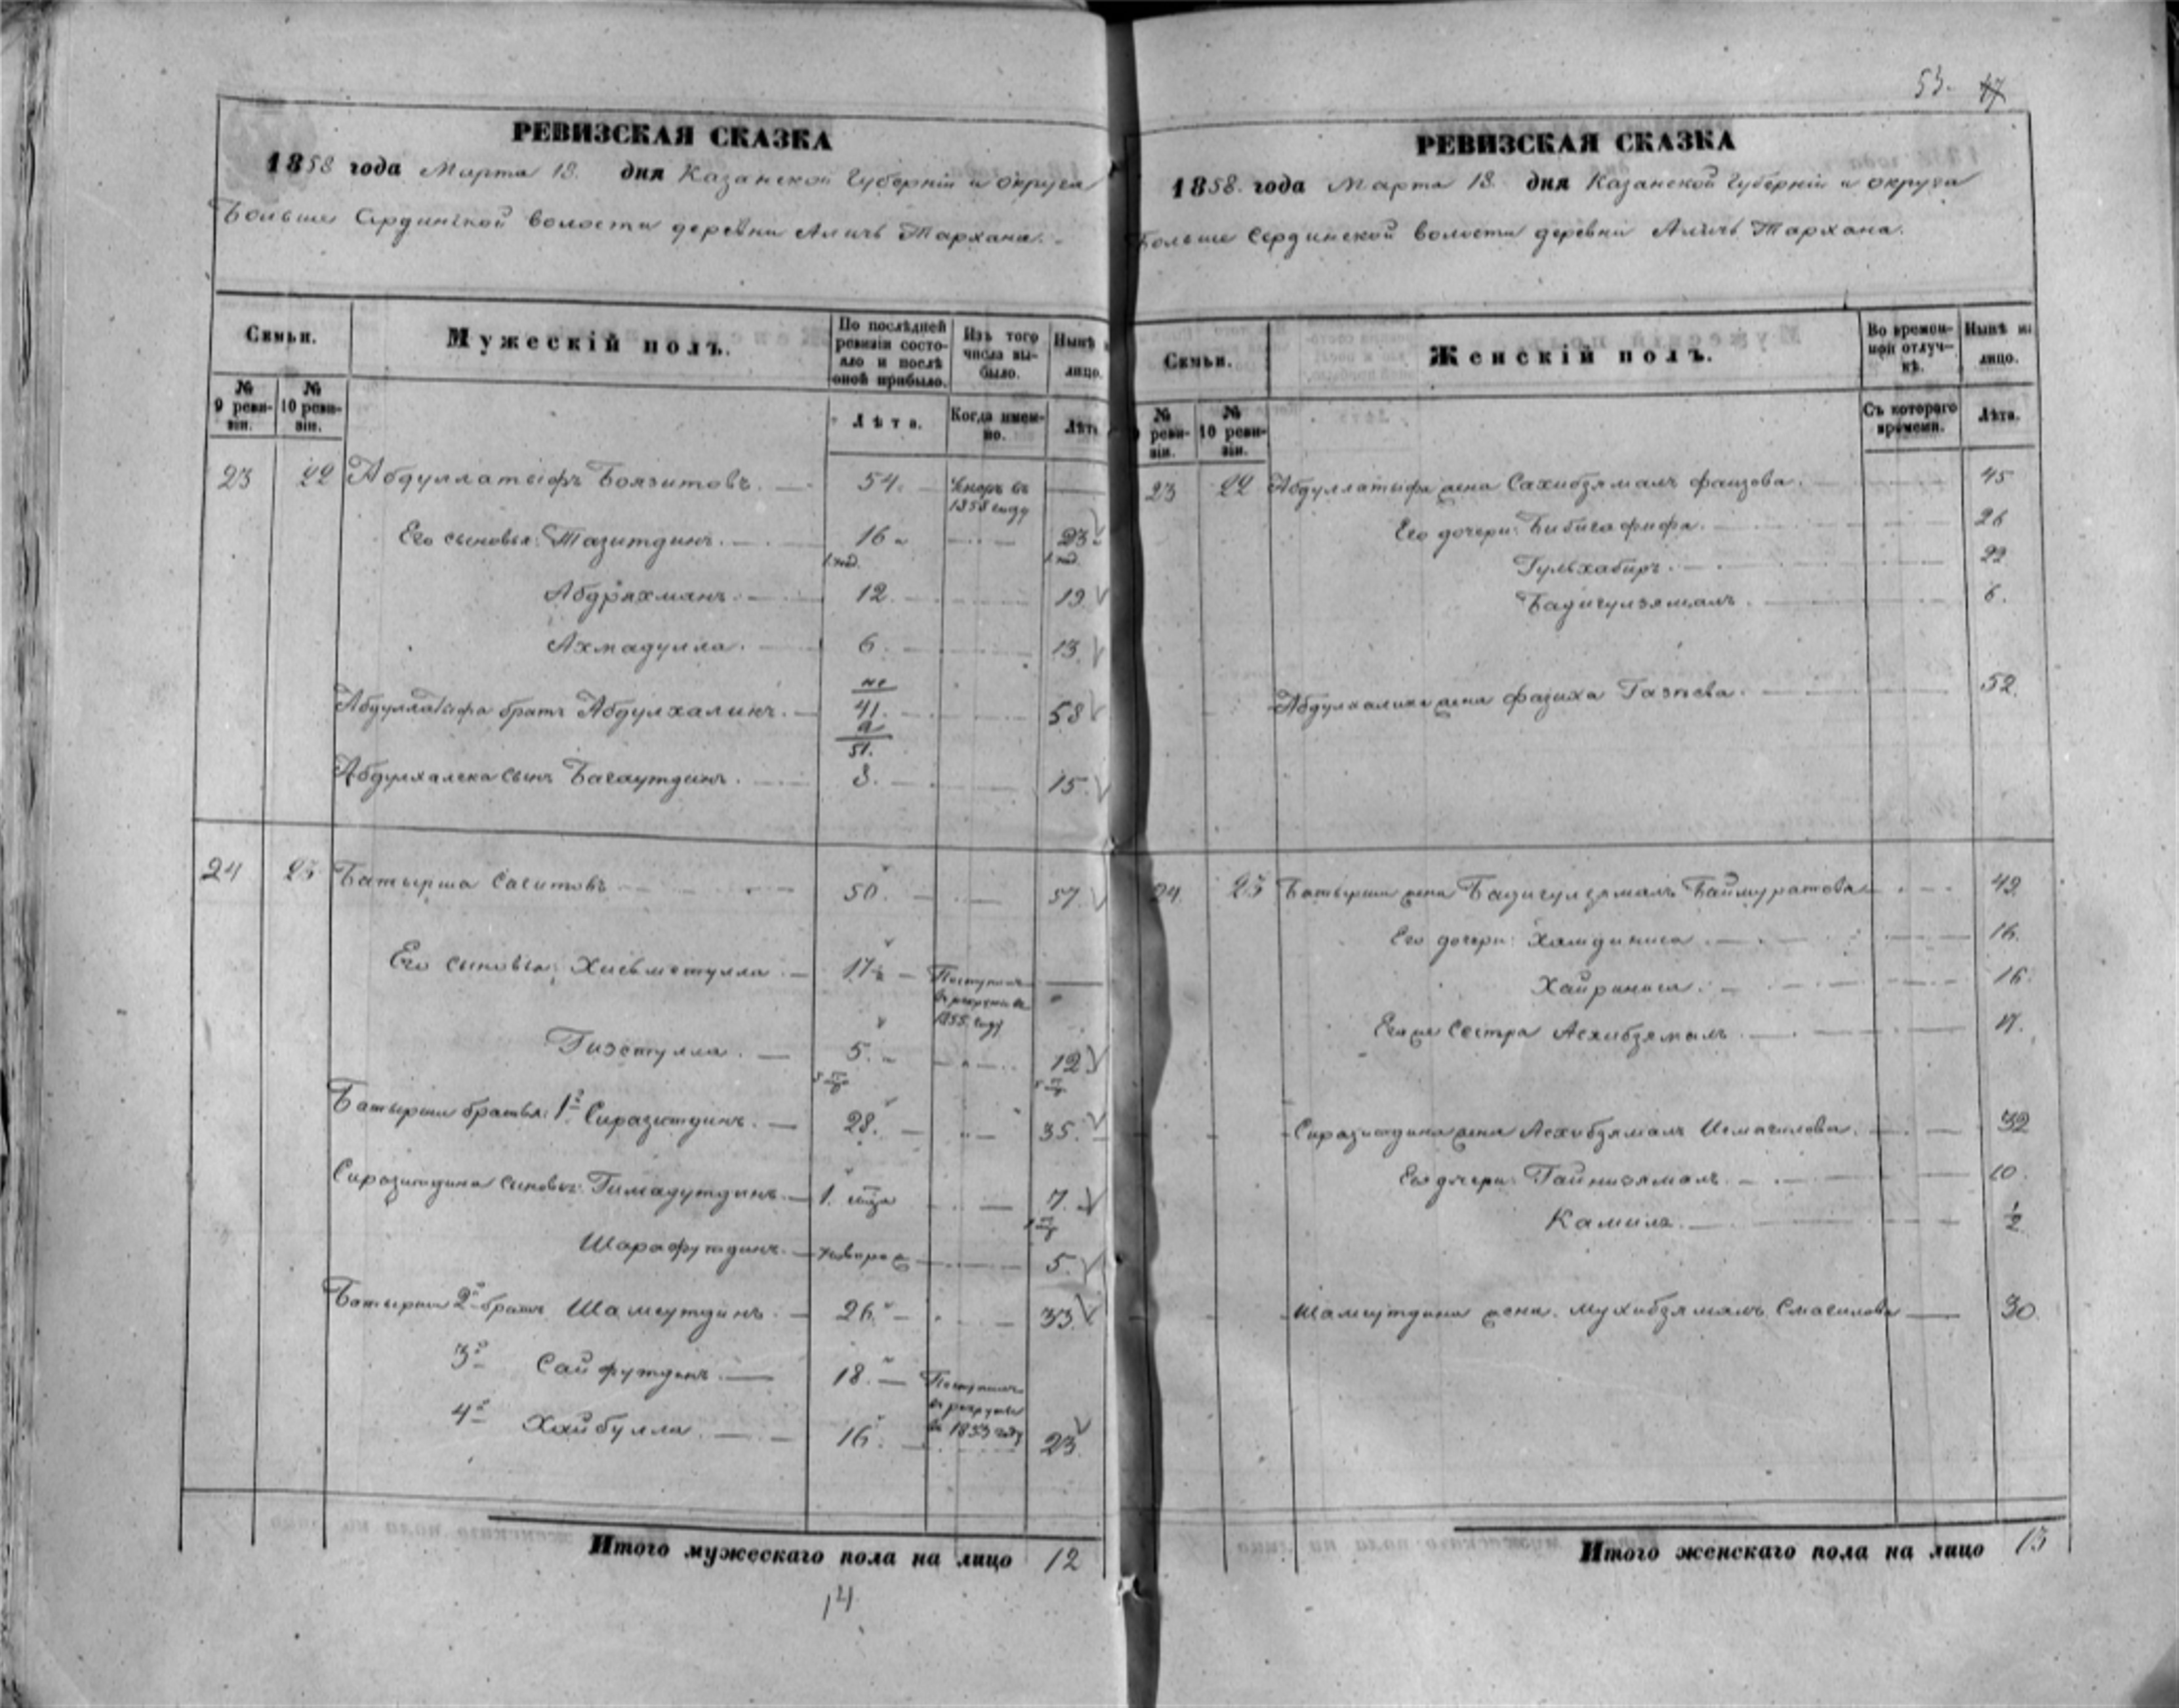 53. 47
РЕВИЗСКАЯ СКАЗКА
1858 года Марта 18. дня Казанской Губерніи и округа
Больше Сердинской волости деревни Аличъ Тархана.
Семьи.
Мужескій полъ.
По послѣдней ревизіи состояло и послѣ оной прибыло.
Изъ того числа выбыло.
Нынѣ
лицо.
№ 9 ревизіи.
№ 10 ревизіи.
Лѣта.
Когда именно.
Лѣт
23 22 Абдуллатыфъ Боязитовъ. 54. Умеръ въ 1855 году
Его сыновья: Тазитдинъ. 16 23
Абдряхманъ. 12. 19
Ахмадулла. 6. 13.
Абдуллатыфа братъ Абдулхаликъ. не 41. а 51. 58
Абдулхалека сынъ Багаутдинъ. 8. 15.
24 23 Батырша Сагитовъ 50. 57.
Его сыновья: Хисьметулла 17 Поступилъ въ рекруты въ 1855 году
Гизетулла. 5. 12
Батырши братья: 1й Сиразитдинъ. 28. 35.
Сиразитдина сыновья: Гимадутдинъ. 1. 7.
Шарафутдинъ. новорож 5.
Батырши 2й братъ Шамсутдинъ. 26. 33.
3й Сайфутдинъ. 18. Поступилъ въ рекруты въ 1853 году
4й Хайбулла. 16. 23.
Итого мужескаго пола на лицо 12
14
РЕВИЗСКАЯ СКАЗКА
1858. года Марта 18. дня Казанской Губерніи и округа
Больше Сердинской волости деревни Аличъ Тархана.
Семьи.
Женскій полъ.
Во временной отлучкѣ.
Нынѣ на
лицо.
№ ревизіи.
№ 10 ревизіи.
Съ котораго времени.
Лѣта.
23 22 Абдуллатыфа жена Сахибзямалъ Фаизова. 45
Его дочери: Бибигафифа. 26
Гульхабиръ. 22
Бадигулзямалъ. 6.
Абдулхалика жена Фазиха Газиева. 52.
24. 23 Батырши жена Бадигулзямалъ Баймуратова 49.
Его дочери: Хамдиниса. 16.
Хайриниса. 16.
Его же сестра Асхибзямалъ. 17.
Сиразитдина жена Асхибзямалъ Исмагилова. 32
Его дочери: Гайнизямалъ. 10.
Камиля. ½
Шамсутдина жена. Мухибзямалъ Смагилова 30.
Итого женскаго пола на лицо 13